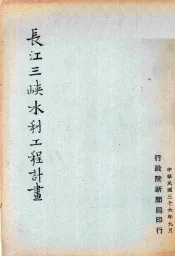 長江三峽水利工程計畫
行政院新聞局印行
中華民國三十六年九月